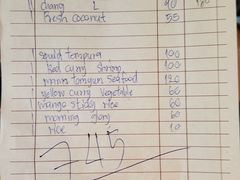 chang L 90 180
Fresh coconut 55
squid tempura 100
Red curry Shrimp 100
mam tomyum Seafood 120
yellow curry vegetable 60
mango sticky rice 60
morning glory 60
rice 10
745